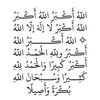 اللهُ أَكْبَرُ اللهُ أَكْبَرُ
اللهُ أَكْبَرُ لَا إِلَهَ إِلَّا
اللهُ اللهُ أَكْبَرُ
اللهُ أَكْبَرُ وَلِلَّهِ الْحَمْدُ اللهُ
أَكْبَرُ كَبِيرًا وَالْحَمْدُ لِلَّهِ
كَثِيرًا وَسُبْحَانَ اللهِ
بُكْرَةً وَأَصِيلًا